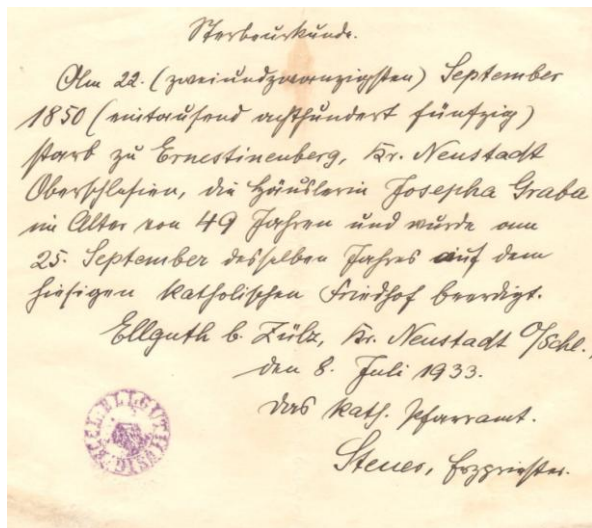 Sterbeurkunde.
Am 22. (zweiundzwanzigsten) September
1850 (eintausend achthundert fünfzig)
starb zu Ernestinenberg, Kr. Neustadt
Oberschlesien, die Häuslerin Josepha Graba
im Alter von 49 Jahren und wurde am
25. September desselben Jahres auf dem
hiesigen katholischen Friedhof beerdigt.
Ellguth b. Zülz, Kr. Neustadt O/Schl.,
den 8. Juli 1933.
Das kath. Pfarramt.
Erzpriester.
SIG. ECCL. ELLGUTH